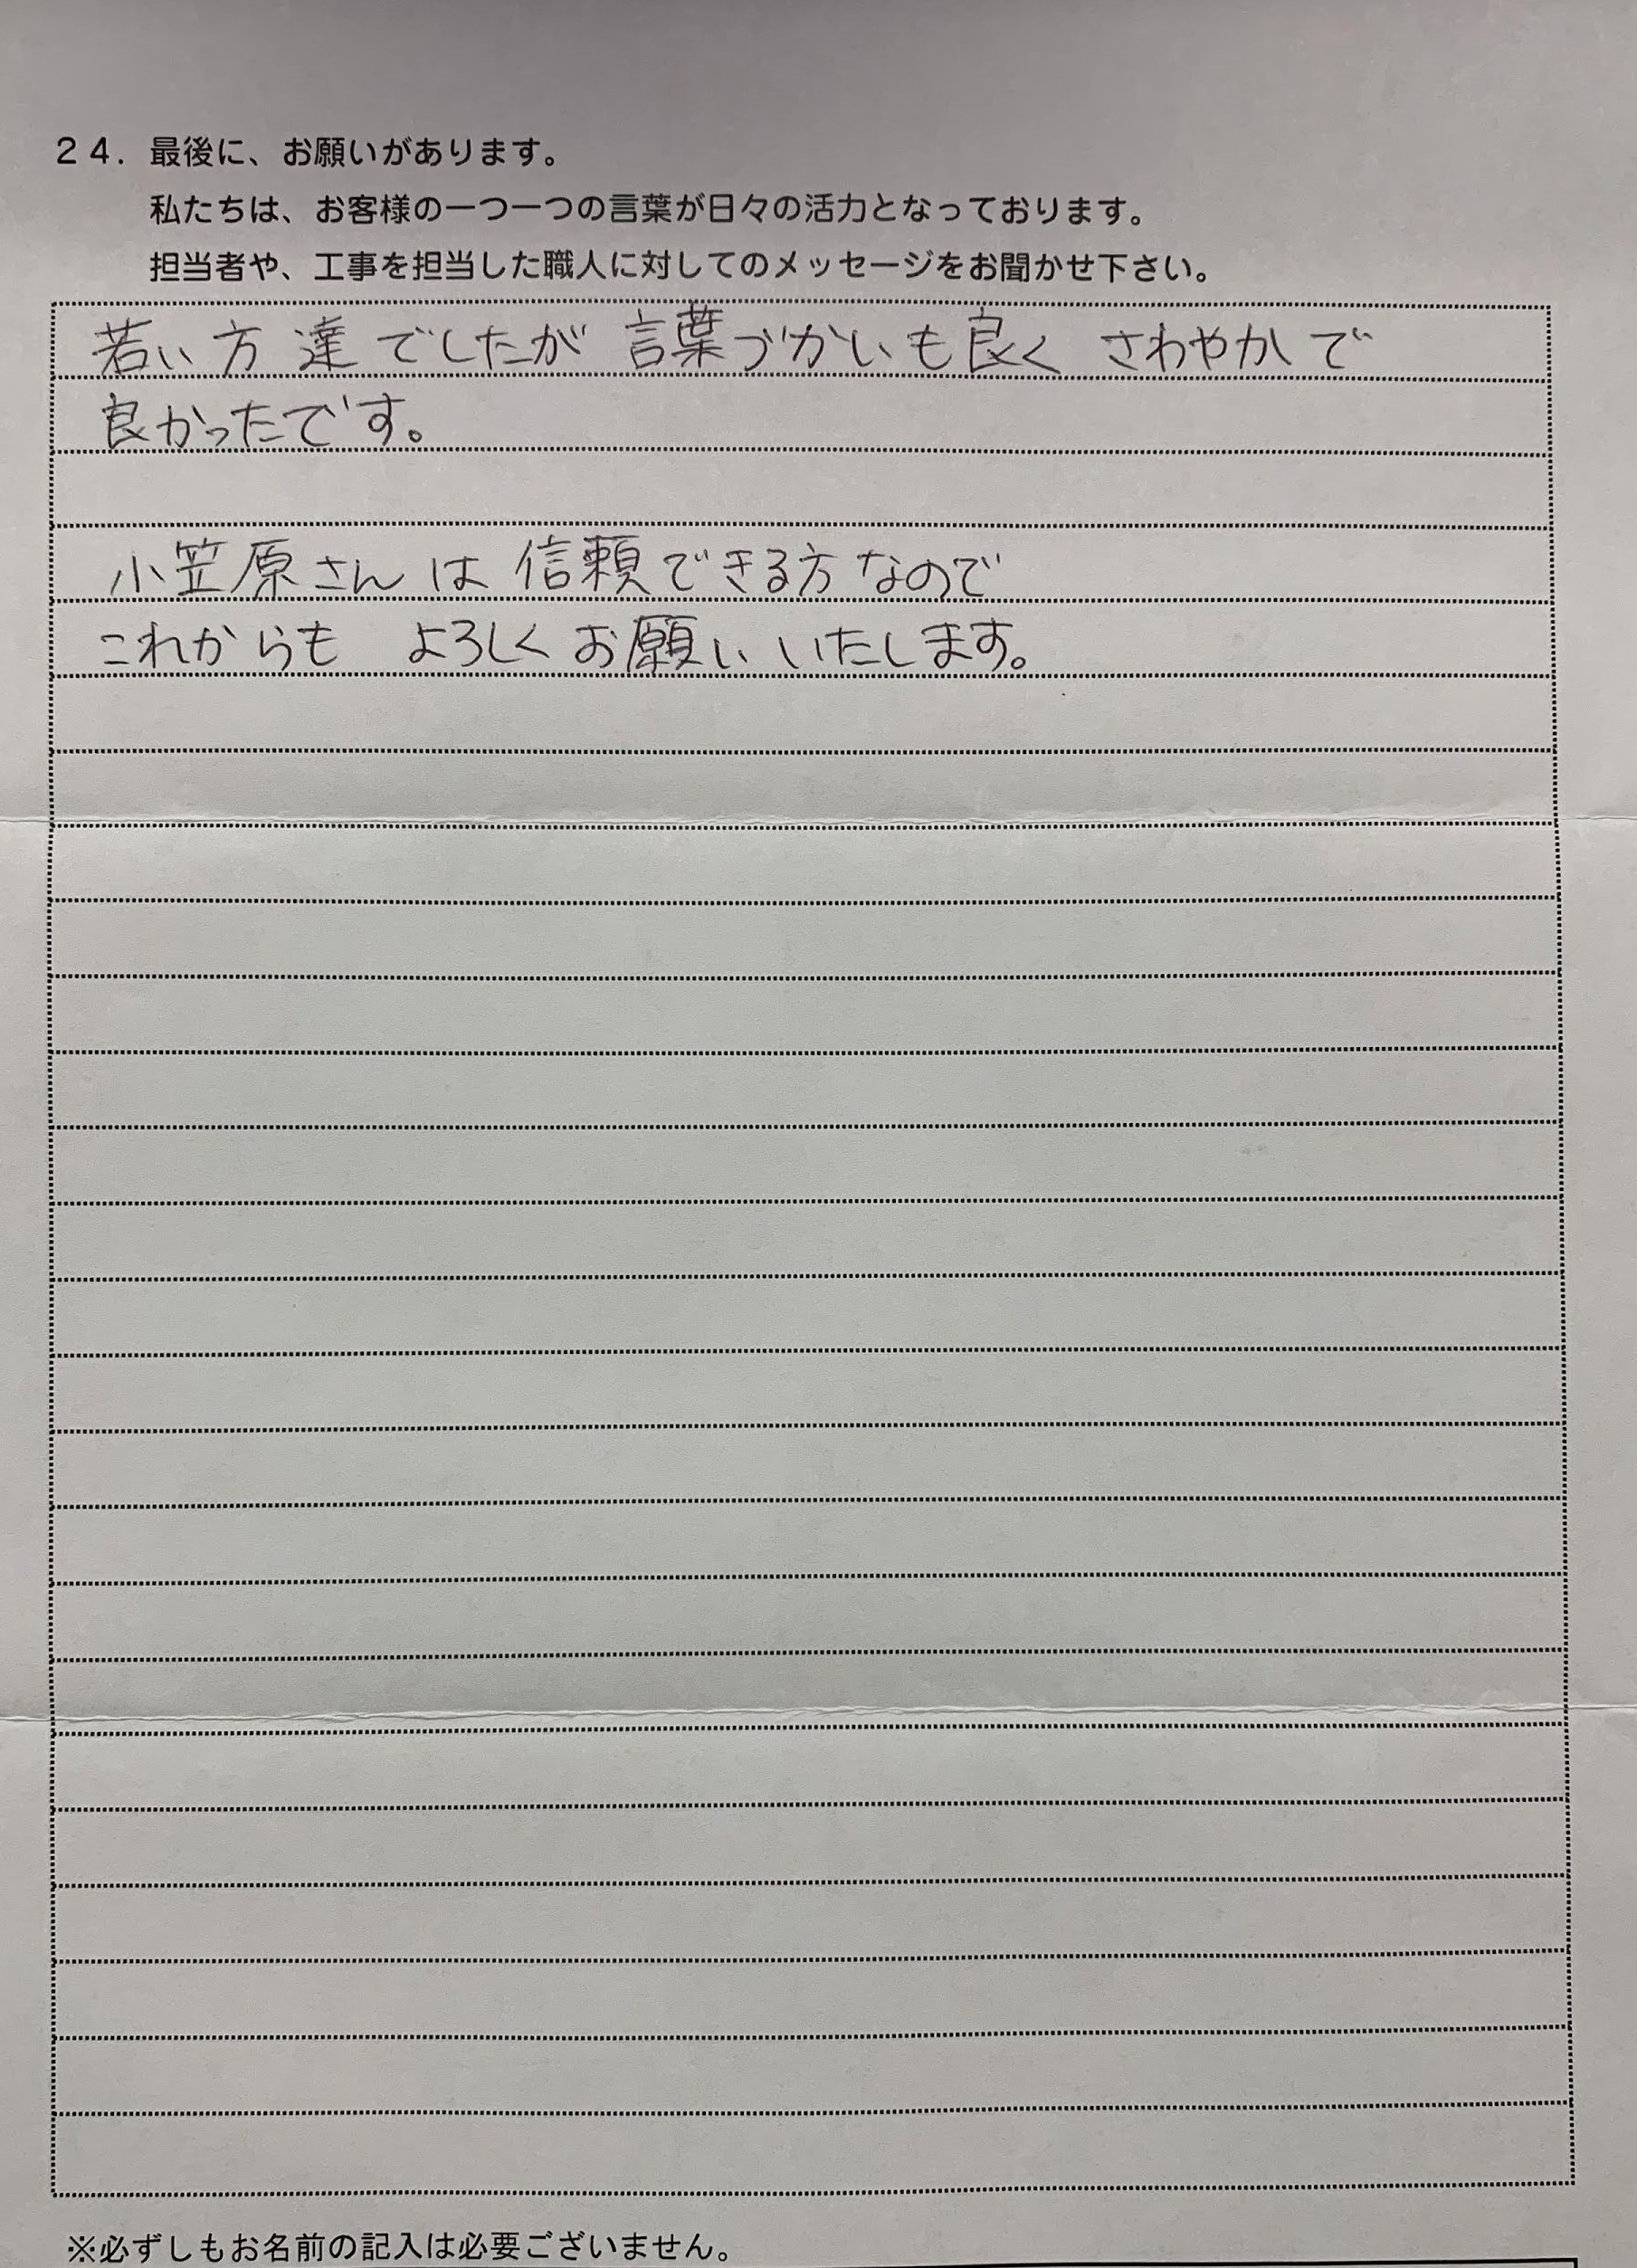 ２４．最後に、お願いがあります。
私たちは、お客様の一つ一つの言葉が日々の活力となっております。
担当者や、工事を担当した職人に対してのメッセージをお聞かせ下さい。
若い方達でしたが 言葉づかいも良く さわやかで
良かったです。
小笠原さんは 信頼できる方なので
これからも よろしくお願いいたします。
※必ずしもお名前の記入は必要ございません。